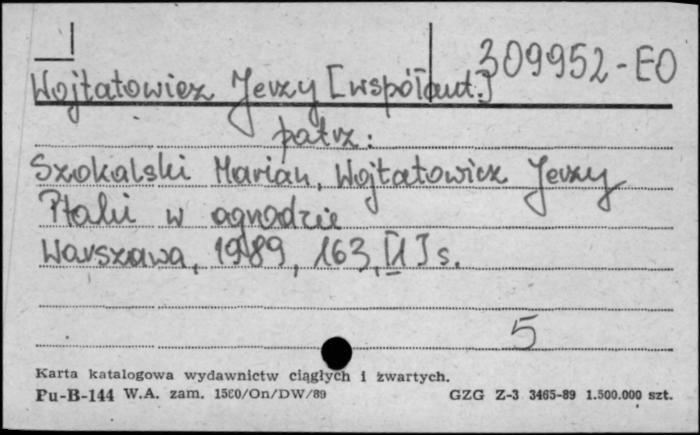 309952-EO
Wojtatowicz Jerzy [współaut.]
patrz:
Szokalski Marian, Wojtatowicz Jerzy
Ptaki w ogrodzie
Warszawa, 1989, 163, [1] s.
5
Karta katalogowa wydawnictw ciągłych i zwartych.
Pu-B-144 W.A. zam. 1500/On/DW/89 GZG Z-3 3465-89 1.500.000 szt.